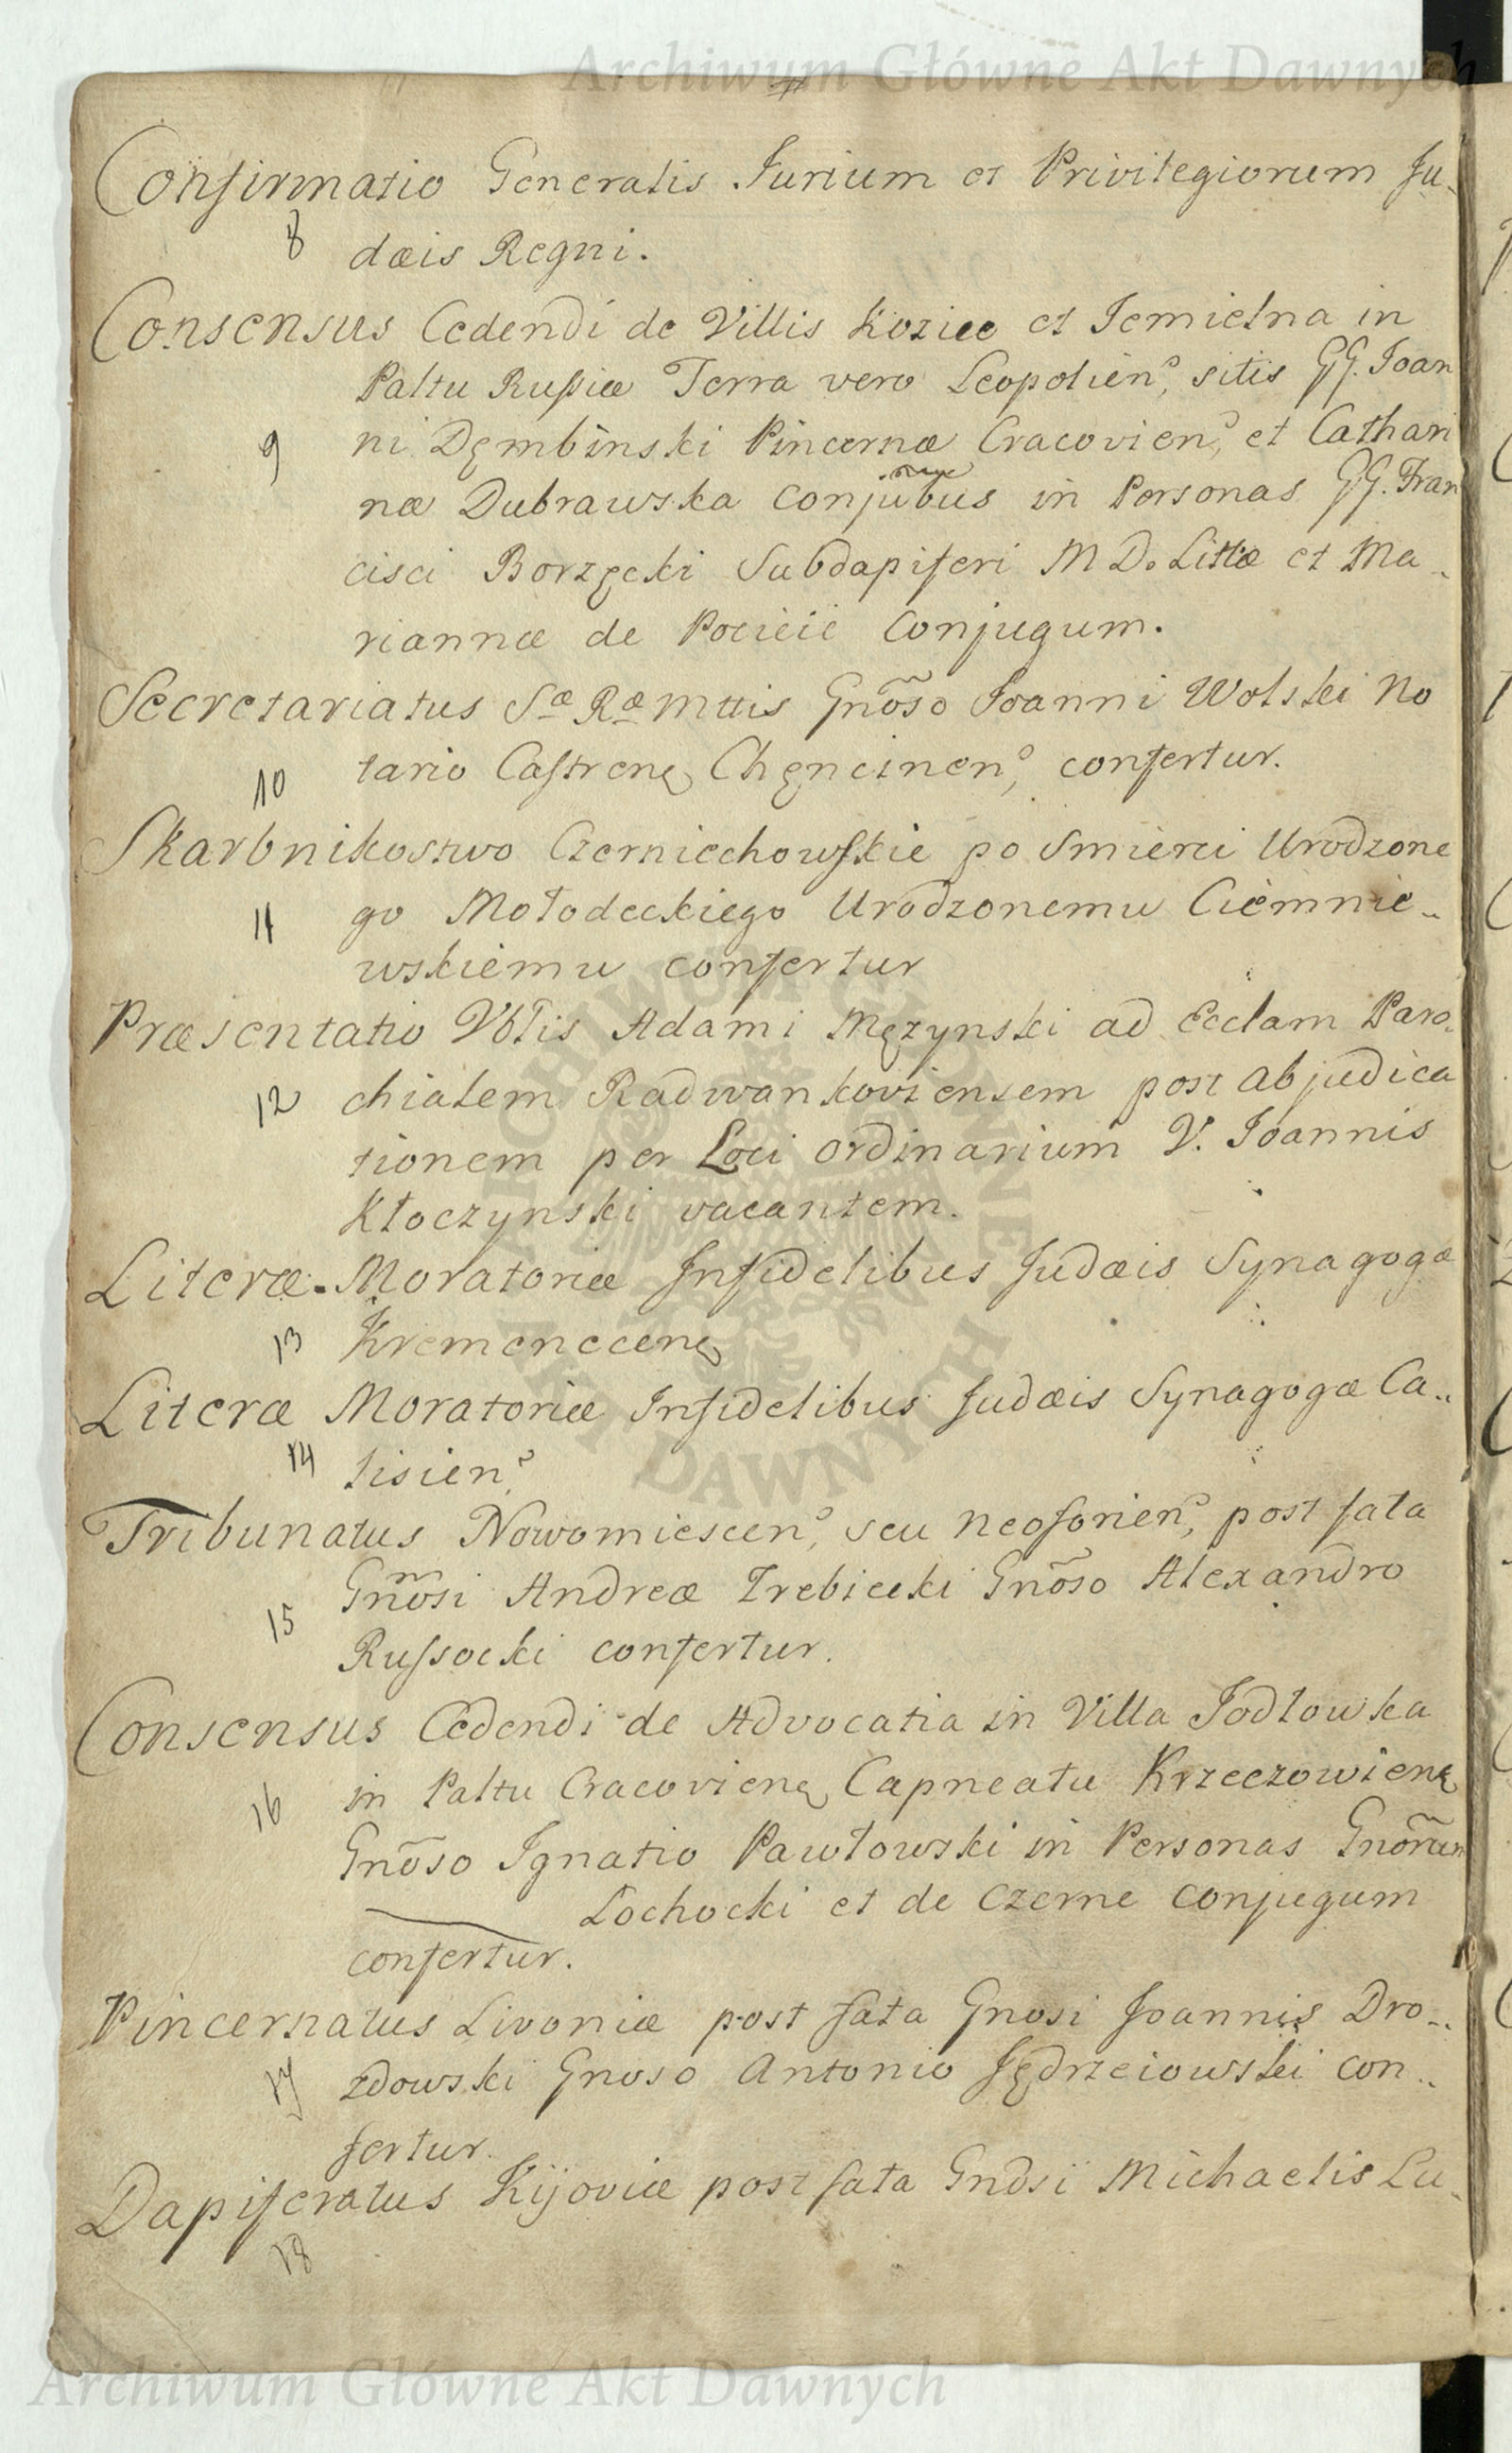 Archiwum Główne Akt Dawnych
Confirmatio Generalis Jurium et Privilegiorum Ju-
8 dæis Regni.
Consensus Cedendi de Villis Kozice et Jemielna in
Paltu Russiæ Terra vero Leopolien, sitis GG. Joan
9 ni Dęmbinski Pincernæ Cracovien, et Cathari
næ Dubrawska conjubus in Personas GG. Fran
cisci Borzęcki Subdapiferi M D. Littiæ et Ma-
riannæ de Pocieii Conjugum.
Secretariatus Sæ Ræ Mttis Gnoso Joanni Wolski No
10 tario Castrenę Chęncinen, confertur.
Skarbnikostwo Czerniechowskie po smierci Urodzone
11 go Mołodeckiego Urodzonemu Ciemnie-
wskiemu confertur
Præsentatio Vblis Adami Męzynski ad Ecclam Paro-
12 chialem Radwankoviensem post abjudica
tionem per Loci ordinarium V. Joannis
Kłoczynski vacantem.
Literæ Moratoriæ Infidelibus Judæis Synagogæ
13 Kremenecenę
Literæ Moratoriæ Infidelibus Judæis Synagogæ Ca-
14 lisien,
Tribunatus Nowomiescen, seu Neoforien, post fata
Gnosi Andreæ Trebicki Gnoso Alexandro
15 Russocki confertur.
Consensus Cedendi de Advocatia in Villa Jodłowka
16 in Paltu Cracovienę Capneatu Krzeczowienę
Gnoso Ignatio Pawłowski in Personas Gnorum
Łochocki et de Czerne conjugum
confertur.
Pincernatus Livoniæ post fata Gnosi Joannis Dro-
17 zdowski Gnoso Antonio Jędrzeiowski con-
fertur.
Dapiferatus Kijoviæ post fata Gnosi Michaelis Lu-
18
ARCHIWUM GŁÓWNE AKT DAWNYCH
Archiwum Główne Akt Dawnych